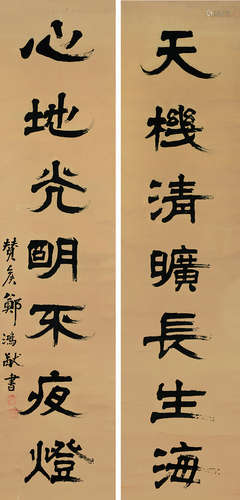 天機清曠長生海
心地光明不夜燈
贊矦鄭鴻猷書